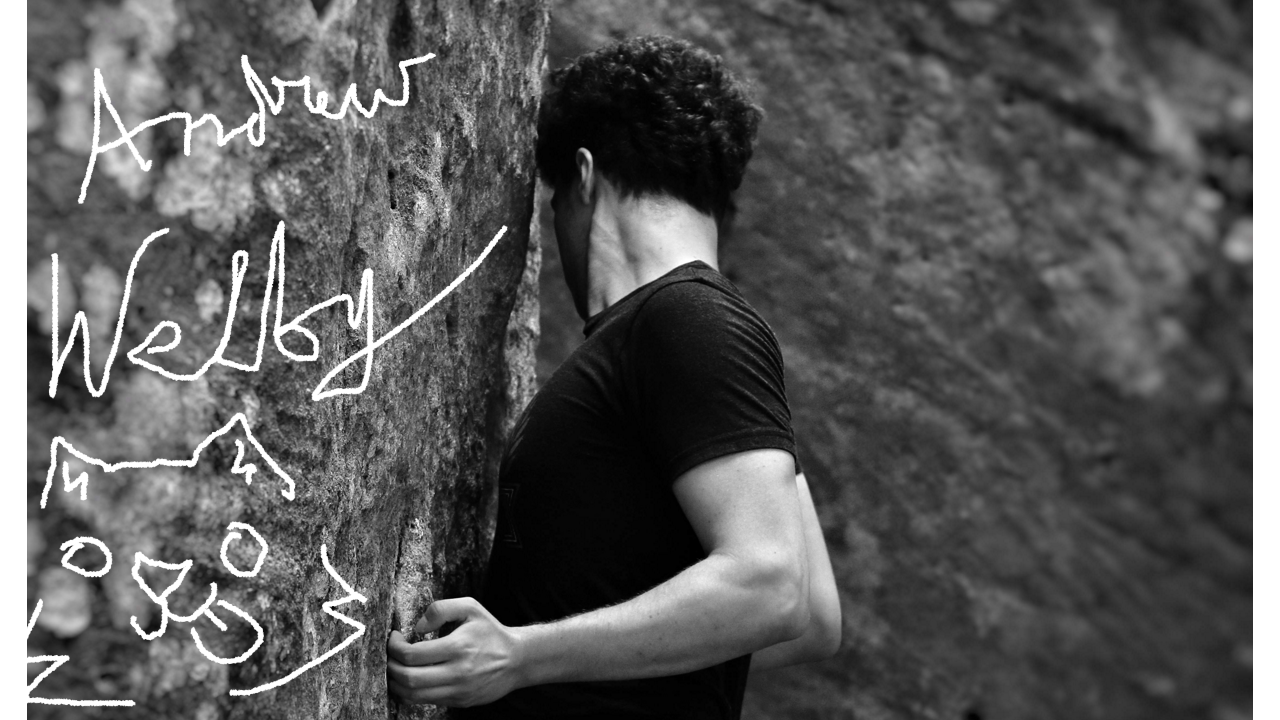 Andrew
Welby